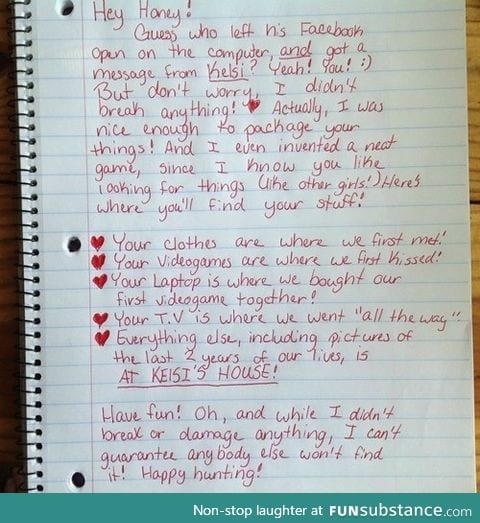 Hey Honey!
Guess who left his Facebook
open on the computer and got a
message from Kelsi? Yeah! You! :)
But don't worry, I didn't
break anything! ♥ Actually, I was
nice enough to package your
things! And I even invented a neat
game, since I know you like
looking for things (like other girls!) Here's
where you'll find your stuff!
♥ Your clothes are where we first met!
♥ Your Videogames are where we first kissed!
♥ Your Laptop is where we bought our
first videogame together!
♥ Your T.V is where we went "all the way".
♥ Everything else, including pictures of
the last 2 years of our lives, is
AT KELSI'S HOUSE!
Have fun! Oh, and while I didn't
break or damage anything, I can't
guarantee anybody else won't find
it! Happy hunting!
Non-stop laughter at FUNsubstance.com